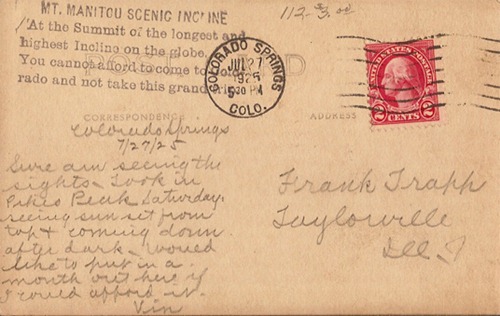 MT. MANITOU SCENIC INCLINE
"At the Summit of the longest and
highest Incline on the globe.
You cannot afford to come to
rado and not take this grand
112-
POST CARD
COLORADO SPRINGS
JUL 27
1925
5 30 PM
COLO.
UNITED STATES POSTAGE
2 CENTS 2
CORRESPONDENCE
ADDRESS
Colorado Springs
7/27/25
Sure am seeing the
sights. Took in
Pikes Peak Saturday.
seeing sun set from
top & coming down
after dark. Would
like to put in a
month out here if
I could afford it.
Vin
Frank Trapp
Taylorville
Ill.